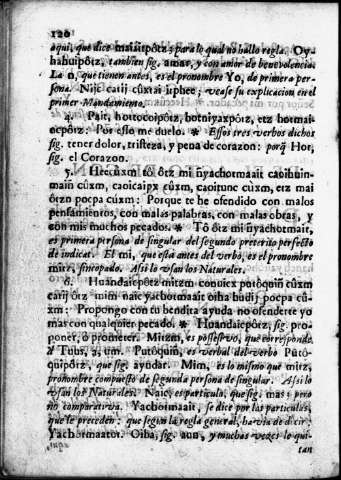 120
aqui, que dice maiuitpôtz; para lo qual no hallo regla. Oy-
hahuipôtz, tambien sig. amar, y con amor de benevolencia.
La n, que tienen antes, es el pronombre Yo, de primera per-
sona. Nije catij cûxtai jiphee; vease su explicacion en el
primer Mandamiento.
4. Pait, hottocoipôtz, hotniyaxpôtz, etz hotmai-
ocpôtz: Por esso me duelo. * Essos tres verbos dichos
sig. tener dolor, tristeza, y pena de corazon: porq̃ Hot,
sig. el Corazon.
5. Hecûxm tô ôtz mi ñyachotmaait caoihuin-
maiñ cûxm, caoicaipx cûxm, caoitunc cûxm, etz mai
ôtzn pocpa cûxm: Porque te he ofendido con malos
pensamientos, con malas palabras, con malas obras, y
con mis muchos pecados. * Tô ôtz mi ñyachotmait,
es primera persona de singular del segundo preterito perfecto
de indicat. El mi, que está antes del verbo, es el pronombre
mitz, sincopado. Assi lo usan los Naturales.
6. Huandaicpôtz mitzm conuicx putôquiñ cûxm
catij ôtz mim naic yachotmaait oiha budij pocpa cû-
xm: Propongo con tu bendita ayuda no ofenderte yo
mas con qualquier pecado. * Huandaicpôtz, sig. pro-
poner, ò prometer. Mitzm, es possessivo, que corresponde
à Tuus, a, um. Putôquiñ, es verbal del verbo Putô-
quipôtz, que sig. ayudar. Mim, es lo mismo que mitz,
pronombre compuesto de segunda persona de singular. Assi lo
usan los Naturales. Naic, es particula, que sig. mas: pero
no comparativa. Yachotmaait, se dice por las particulas,
que le preceden: que segun la regla general, havia de dicir
Yachotmaatôt. Oiha, sig. aun, y muchas vezes le qui-
tan